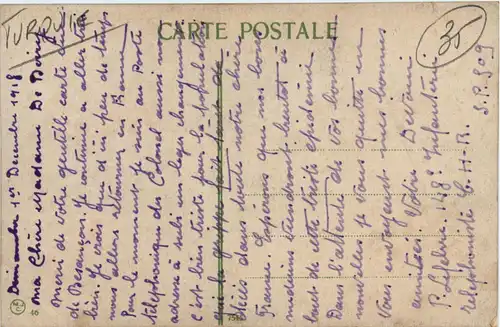 TURQUIE
CARTE POSTALE
35
Dimanche 1er Decembre 1918
Ma Chère Madame De Dome
Merci de votre gentille carte
de Besançon. Je continue a aller très
bien. Je crois que d'ici peu de temps
nous allons retourner en
Pour le moment je suis au poste
téléphonique du Colonel aussi mon
adresse a subi un leger changement
c'est bien triste pour la population
que la grippe fait tant de
dans toute notre chère
France. Esperons que nos bons
medecins viendront bientot à
bout de cette triste epidemie
Dans l'attente de vos bonnes
nouvelles je vous quitte en
vous envoyant mes bonnes
amitiés Votre Devoué
P. Lefebvre 148e Infanterie
telephoniste C.H.R. S.P. 509
46